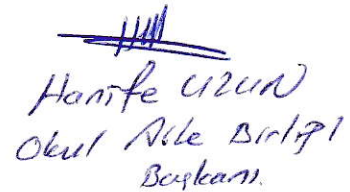 Hanife UZUN
Okul Aile Birliği
Başkanı.